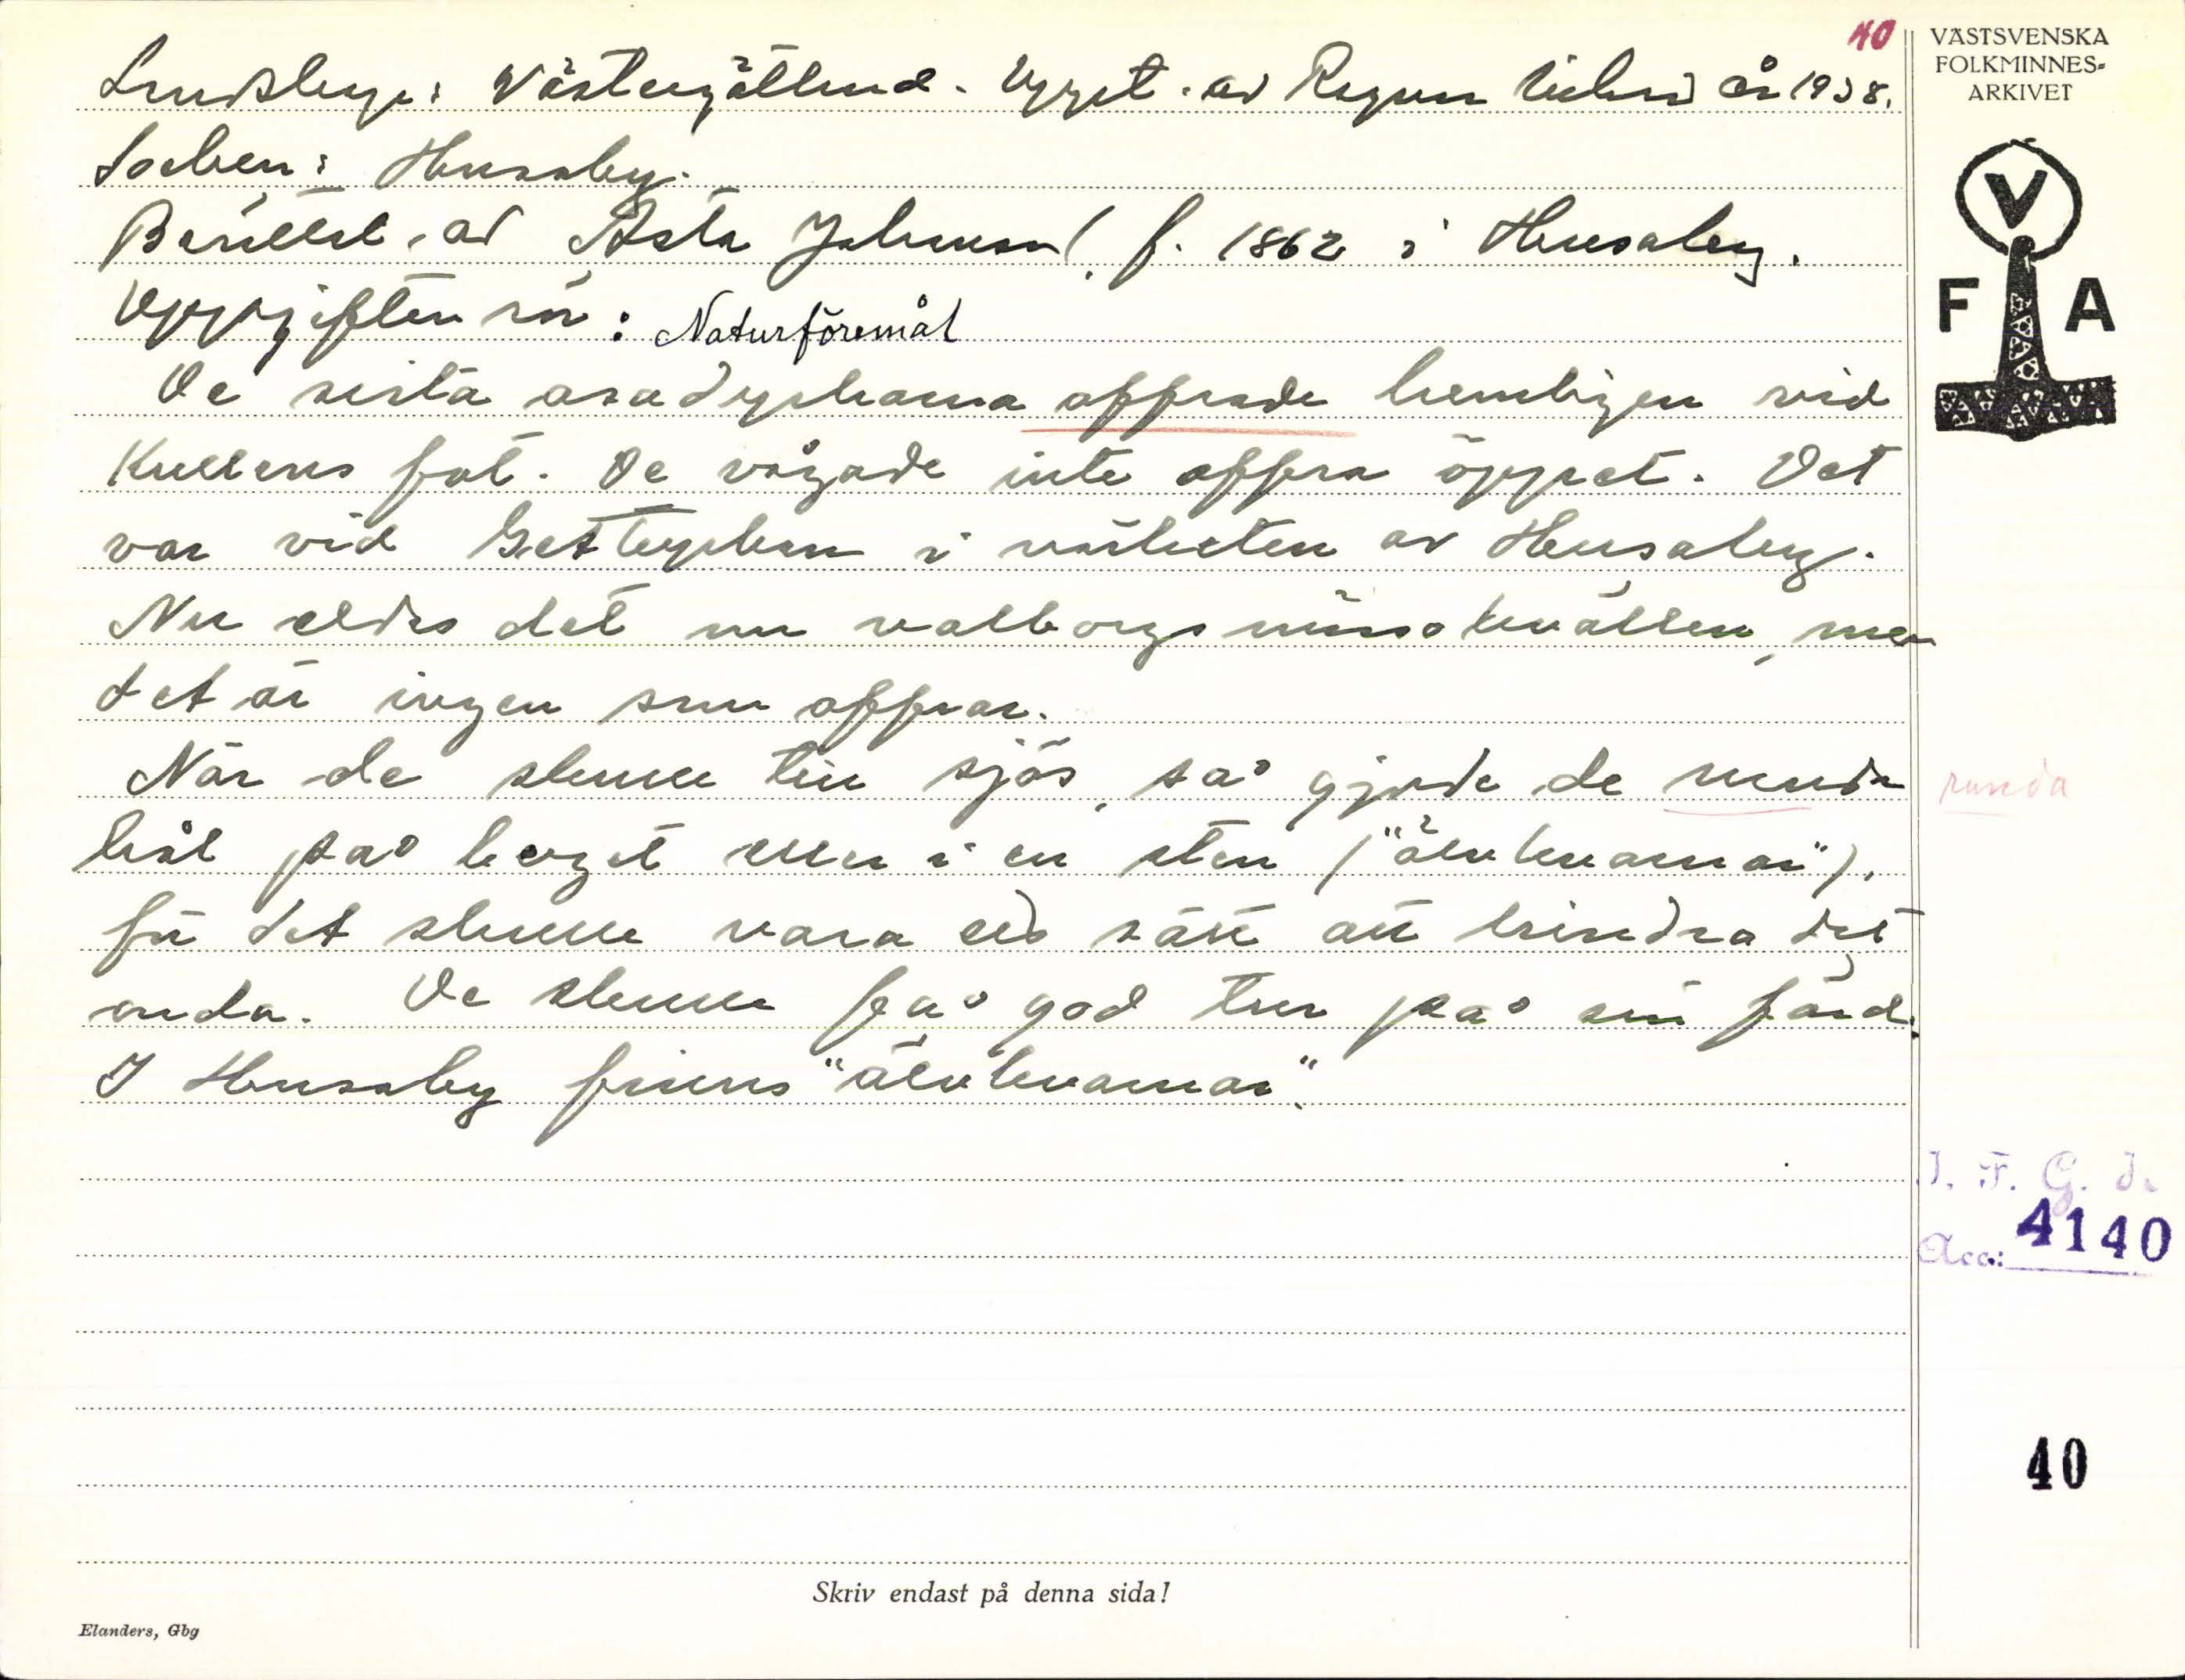 40
VÄSTSVENSKA
FOLKMINNES-
ARKIVET
V
F A
Landskap: Västergötland. Uppt. av Ragnar år 1938.
Socken: Husaby.
Berättat av Asta f. 1862 i Husaby.
Uppgiften rör: Naturföremål
De sista asadyrkarna offrade hemligen vid
Kullens fot. De vågade inte offra öppet. Det
var vid i närheten av Husaby.
Nu eldas det om valborgsmässokvällen, men
det är ingen som offrar.
När de skulle till sjös, så gjorde de runda
runda
hål på berget eller i en sten ("älvkvarnar"),
för det skulle vara ett sätt att hindra det
onda. De skulle få god tur på sin färd.
I Husaby finns "älvkvarnar".
I. F. G. J.
Acc.: 4140
40
Skriv endast på denna sida!
Elanders, Gbg